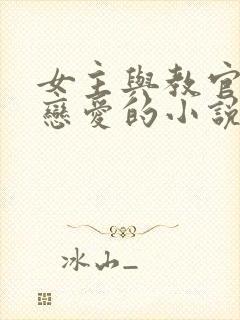 女主與教官
戀愛的小說
冰山_